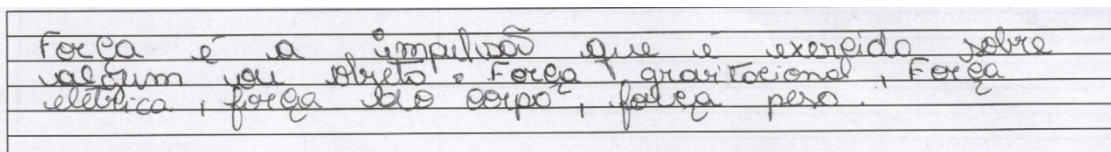 Força é a impulsão que é exercida sobre
algum ou objeto. Força gravitacional, Força
elétrica, força do corpo, força peso.